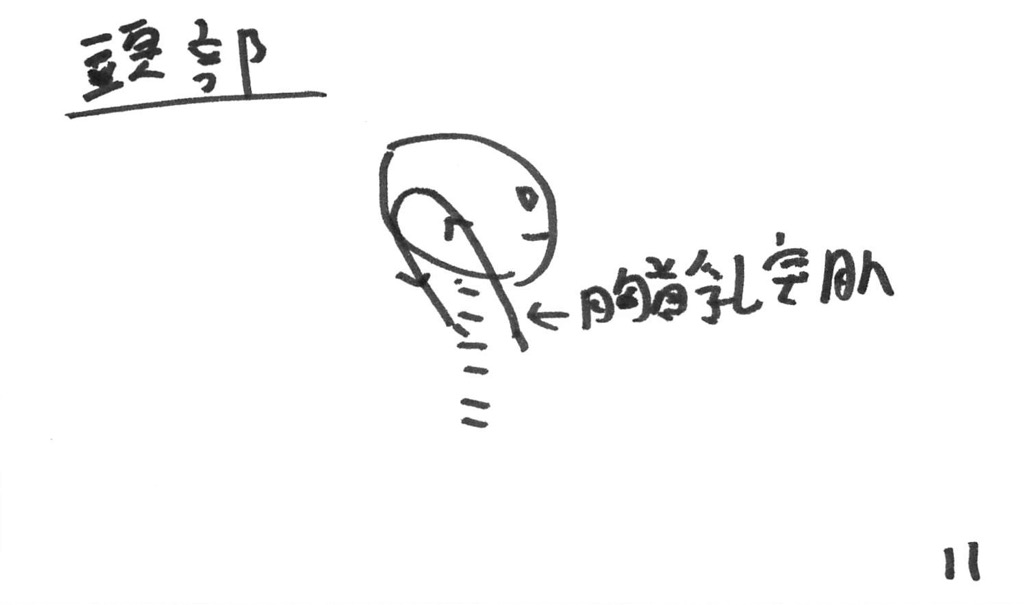 頭部
←胸鎖乳突筋
11